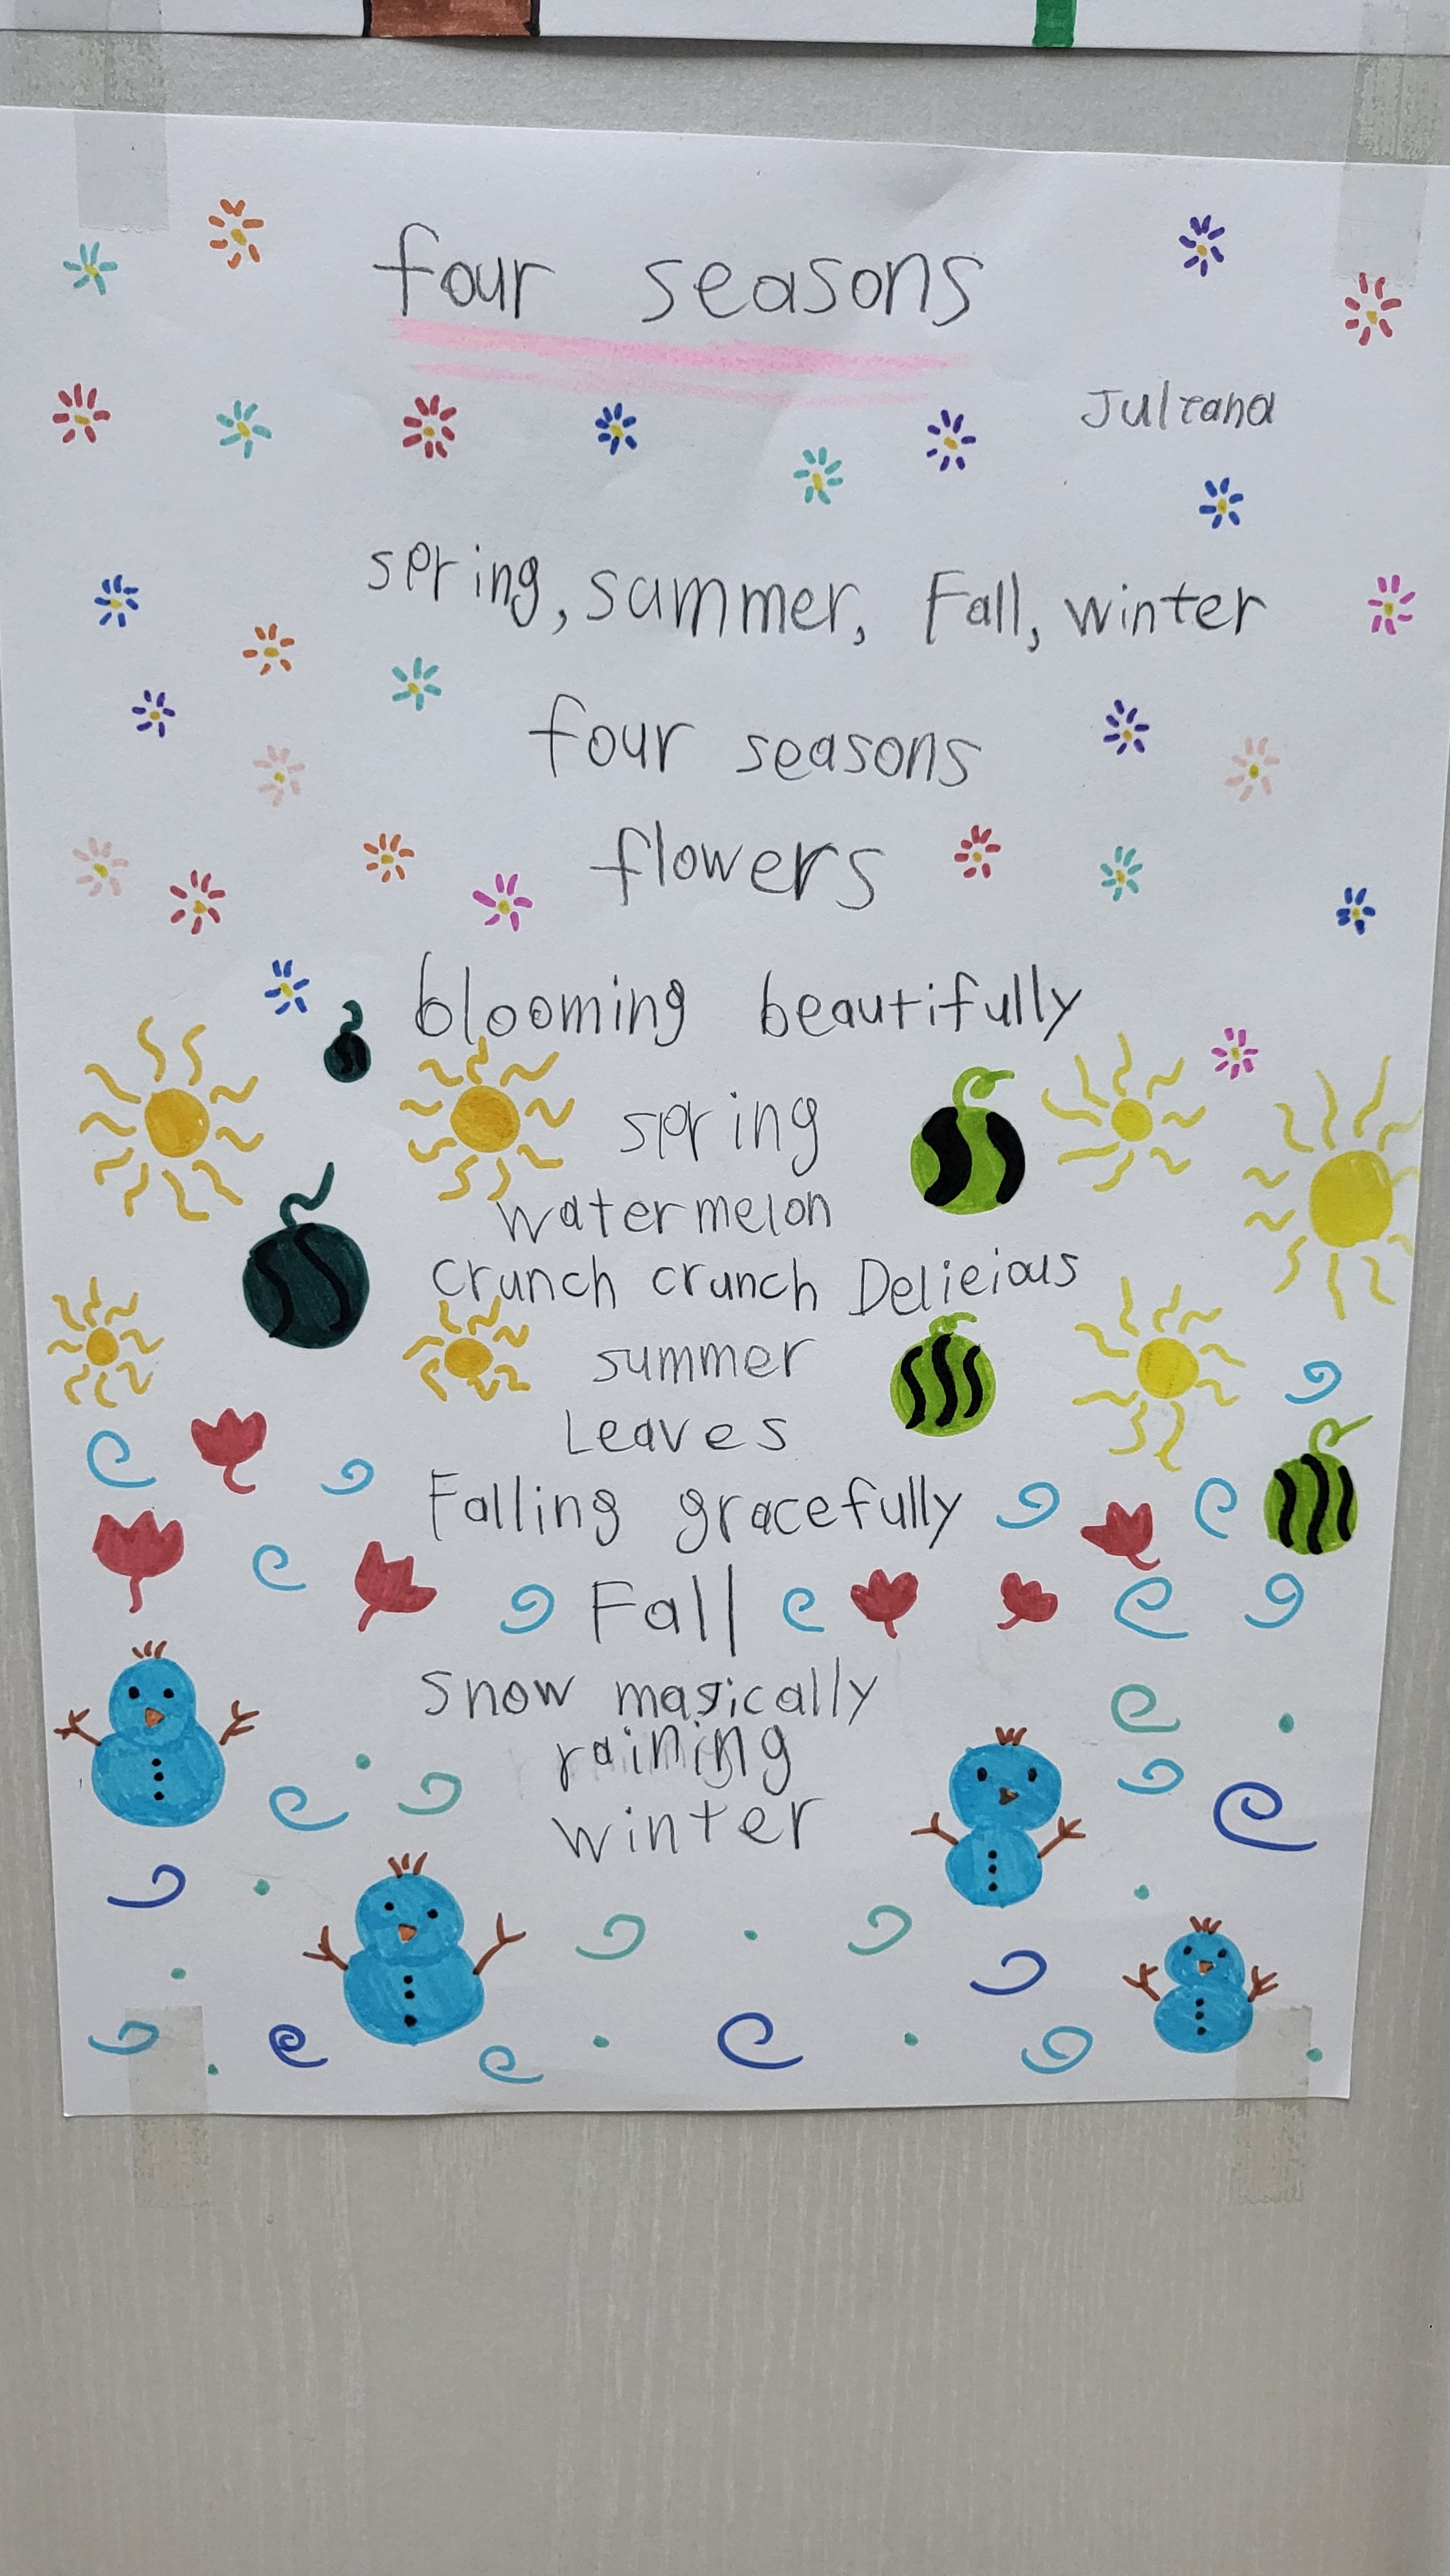 four seasons
Juliana
spring, summer, Fall, winter
four seasons
flowers
blooming beautifully
spring
watermelon
crunch crunch Delieious
summer
Leaves
Falling gracefully
Fall
Snow magically
raining
winter